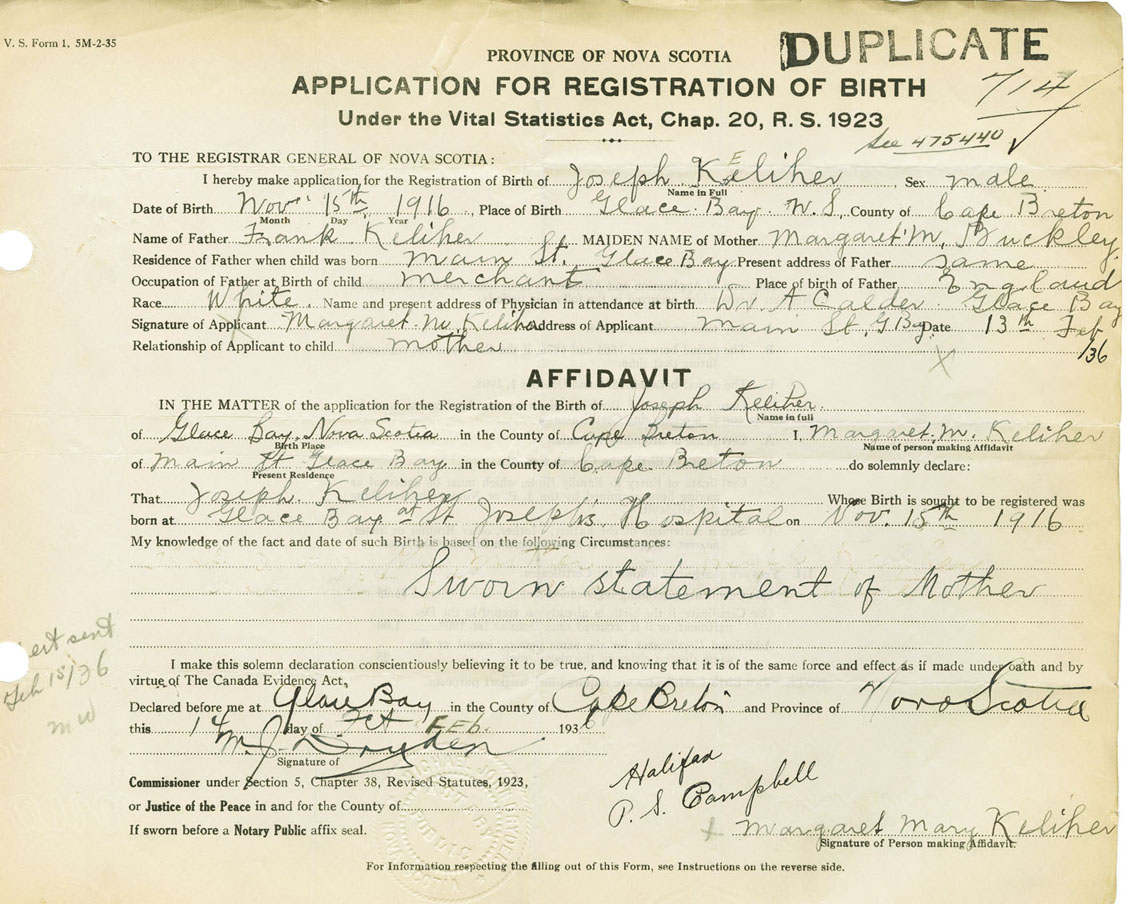 V. S. Form 1. 5M-2-35
DUPLICATE
PROVINCE OF NOVA SCOTIA
714
APPLICATION FOR REGISTRATION OF BIRTH
Under the Vital Statistics Act, Chap. 20, R. S. 1923
See 475440
TO THE REGISTRAR GENERAL OF NOVA SCOTIA:
I hereby make application for the Registration of Birth of Joseph Keliher Sex male
E
Name in Full
Date of Birth Nov. 15th 1916, Place of Birth Glace Bay N.S, County of Cape Breton
Month Day Year
Name of Father Frank Keliher MAIDEN NAME of Mother Margaret M. Buckley
Residence of Father when child was born Main St. Glace Bay Present address of Father same
Occupation of Father at Birth of child merchant Place of birth of Father England
Race White. Name and present address of Physician in attendance at birth Dr A Calder Glace Bay
Signature of Applicant Margaret M. Keliher Address of Applicant Main St, G Bay Date 13th Feb
/36
Relationship of Applicant to child mother
X
AFFIDAVIT
IN THE MATTER of the application for the Registration of the Birth of Joseph Keliher
Name in full
of Glace Bay, Nova Scotia in the County of Cape Breton I, Margaret. M. Keliher
Birth Place Name of person making Affidavit
of Main St Glace Bay in the County of Cape Breton do solemnly declare:
Present Residence
That Joseph Keliher Whose Birth is sought to be registered was
born at Glace Bay at St Joseph's Hospital on Nov. 15th 1916
My knowledge of the fact and date of such Birth is based on the following Circumstances:
Sworn statement of Mother
cert sent
Feb 15/36
mw
I make this solemn declaration conscientiously believing it to be true, and knowing that it is of the same force and effect as if made under oath and by
virtue of The Canada Evidence Act,
Declared before me at Glace Bay in the County of Cape Breton and Province of Nova Scotia
this 14 day of Feb. 1936
M. J. Dryden
Signature of
Halifax
P. S. Campbell
Commissioner under Section 5, Chapter 38, Revised Statutes, 1923,
or Justice of the Peace in and for the County of
If sworn before a Notary Public affix seal.
X Margaret Mary Keliher
Signature of Person making Affidavit.
For Information respecting the filling out of this Form, see Instructions on the reverse side.